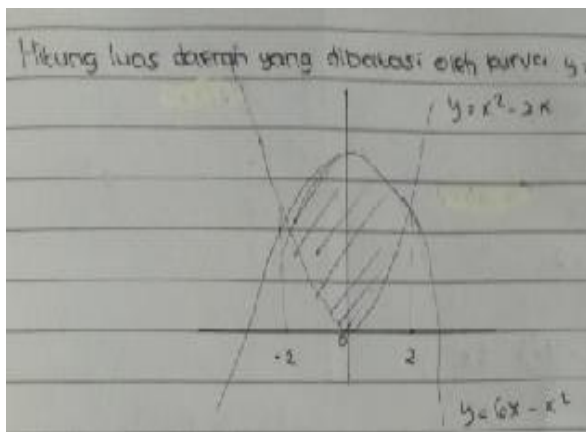 Hitung luas daerah yang dibatasi oleh kurva y=
y = x² - 2x
0
-2 2
y = 6x - x²